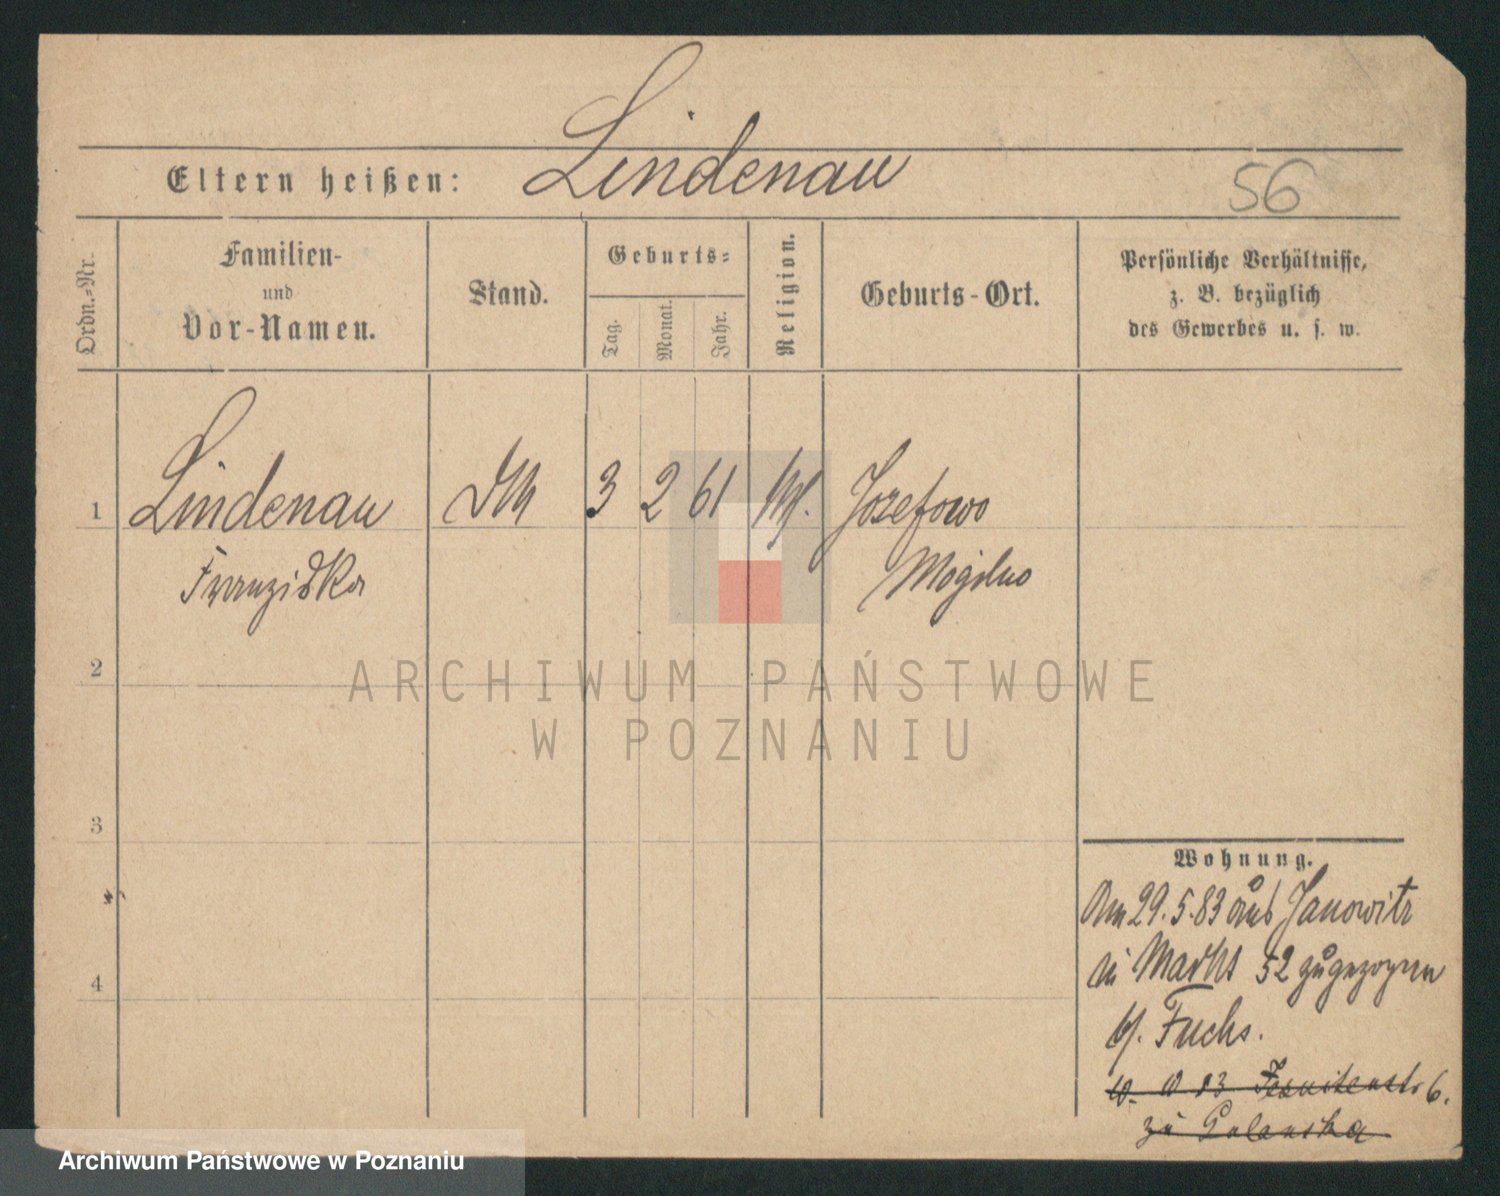 Eltern heißen: Lindenau
56
Ordn.-Nr.
Familien-
und
Vor-Namen.
Stand.
Geburts-
Tag.
Monat.
Jahr.
Religion.
Geburts-Ort.
Persönliche Verhältnisse,
z. B. bezüglich
des Gewerbes u. s. w.
1 Lindenau 3 2 61 Jozefowo
Franziska Mogilno
2
3
4
Wohnung.
Am 29.5.83 aus Janowitz
in Markt 52 zugezogen
b/. Fuchs.
Jesuitenstr 6.
zu Polanska
ARCHIWUM PAŃSTWOWE
W POZNANIU
Archiwum Państwowe w Poznaniu